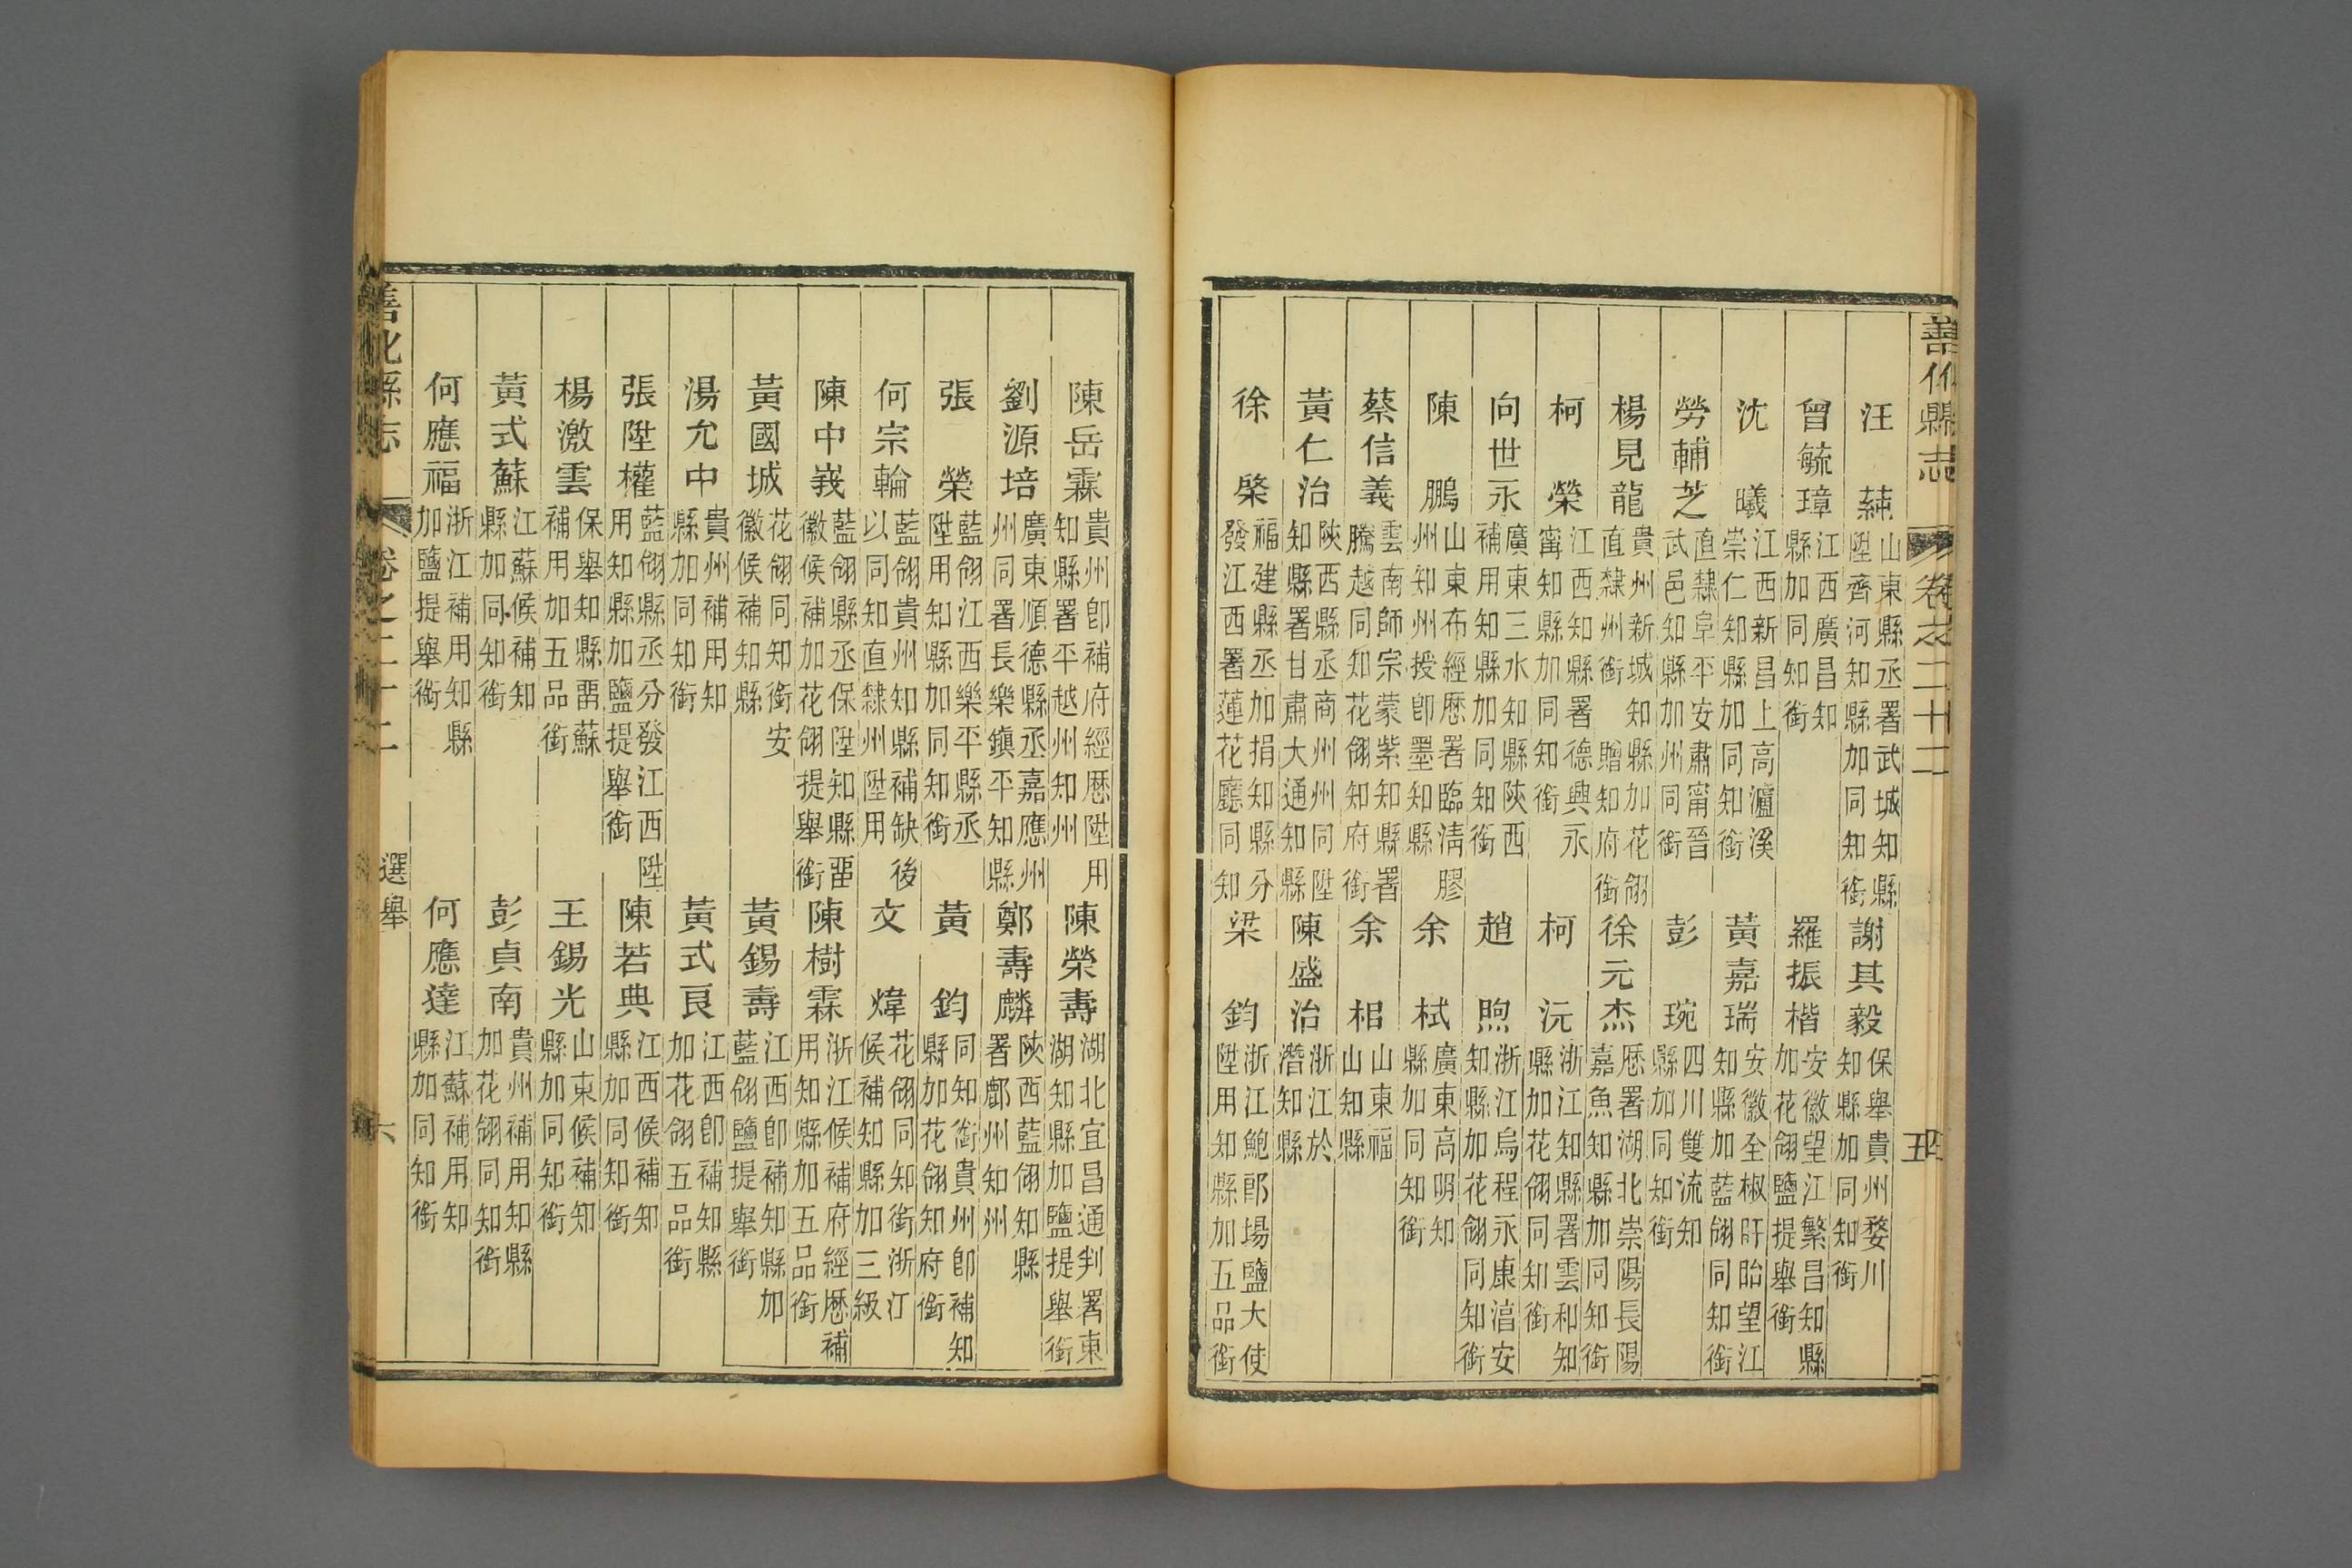 善化縣志 卷之二十二
汪蒓 山東縣丞署武城知縣陞齊河知縣加同知銜 謝其毅 保舉貴州婺川知縣加同知銜
曾毓璋 江西廣昌知縣加同知銜 羅振楷 安徽望江繁昌知縣加花翎鹽提舉銜
沈曦 江西新昌上高瀘溪崇仁知縣加同知銜 黃嘉瑞 安徽全椒盱眙望江知縣加藍翎同知銜
勞輔芝 直隸阜平安肅甯晉武邑知縣加州同銜 彭琬 四川雙流知縣加同知銜
楊見龍 貴州新城知縣加花翎直隸州銜贈知府銜 徐元杰 歷署湖北崇陽長陽嘉魚知縣加同知銜
柯榮 江西知縣署德興永甯知縣加同知銜 柯沅 浙江知縣署雲和知縣加花翎同知銜
向世永 廣東三水知縣陝西補用知縣加同知銜 趙煦 浙江烏程永康湻安知縣加花翎同知銜
陳鵬 山東布經歷署臨淸膠州知州授卽墨知縣 余栻 廣東高明知縣加同知銜
蔡信義 雲南師宗蒙紫知縣署騰越同知花翎知府銜 余梠 山東福山知縣
黃仁治 陝西縣丞商州州同陞知縣署甘肅大通知縣 陳盛治 浙江於潛知縣
徐棨 福建縣丞加捐知縣分發江西署蓮花廳同知 梁鈞 浙江鮑郎場鹽大使陞用知縣加五品銜
陳岳霖 貴州卽補府經歷陞用知縣署平越州知州 陳榮壽 湖北宜昌通判署東湖知縣加鹽提舉銜
劉源培 廣東順德縣丞嘉應州州同署長樂鎭平知縣 鄭壽麟 陝西藍翎知縣署鄜州知州
張榮 藍翎江西樂平縣丞陞用知縣加同知銜 黃鈞 同知銜貴州卽補知縣加花翎知府銜
何宗輪 藍翎貴州知縣補缺後以同知直隸州陞用 文煒 花翎同知銜浙江候補知縣加三級
陳中峩 藍翎縣丞保陞知縣畱徽候補加花翎提舉銜 陳樹霖 浙江候補府經歷補用知縣加五品銜
黃國城 花翎同知銜安徽候補知縣 黃錫壽 江西卽補知縣加藍翎鹽提舉銜
湯允中 貴州補用知縣加同知銜 黃式良 江西卽補知縣加花翎五品銜
張陞權 藍翎縣丞分發江西陞用知縣加鹽提舉銜 陳若典 江西候補知縣加同知銜
楊激雲 保舉知縣畱蘇補用加五品銜 王錫光 山東候補知縣加同知銜
黃式蘇 江蘇候補知縣加同知銜 彭貞南 貴州補用知縣加花翎同知銜
何應福 浙江補用知縣加鹽提舉銜 何應達 江蘇補用知縣加同知銜
善化縣志 卷之二十二 選舉 六